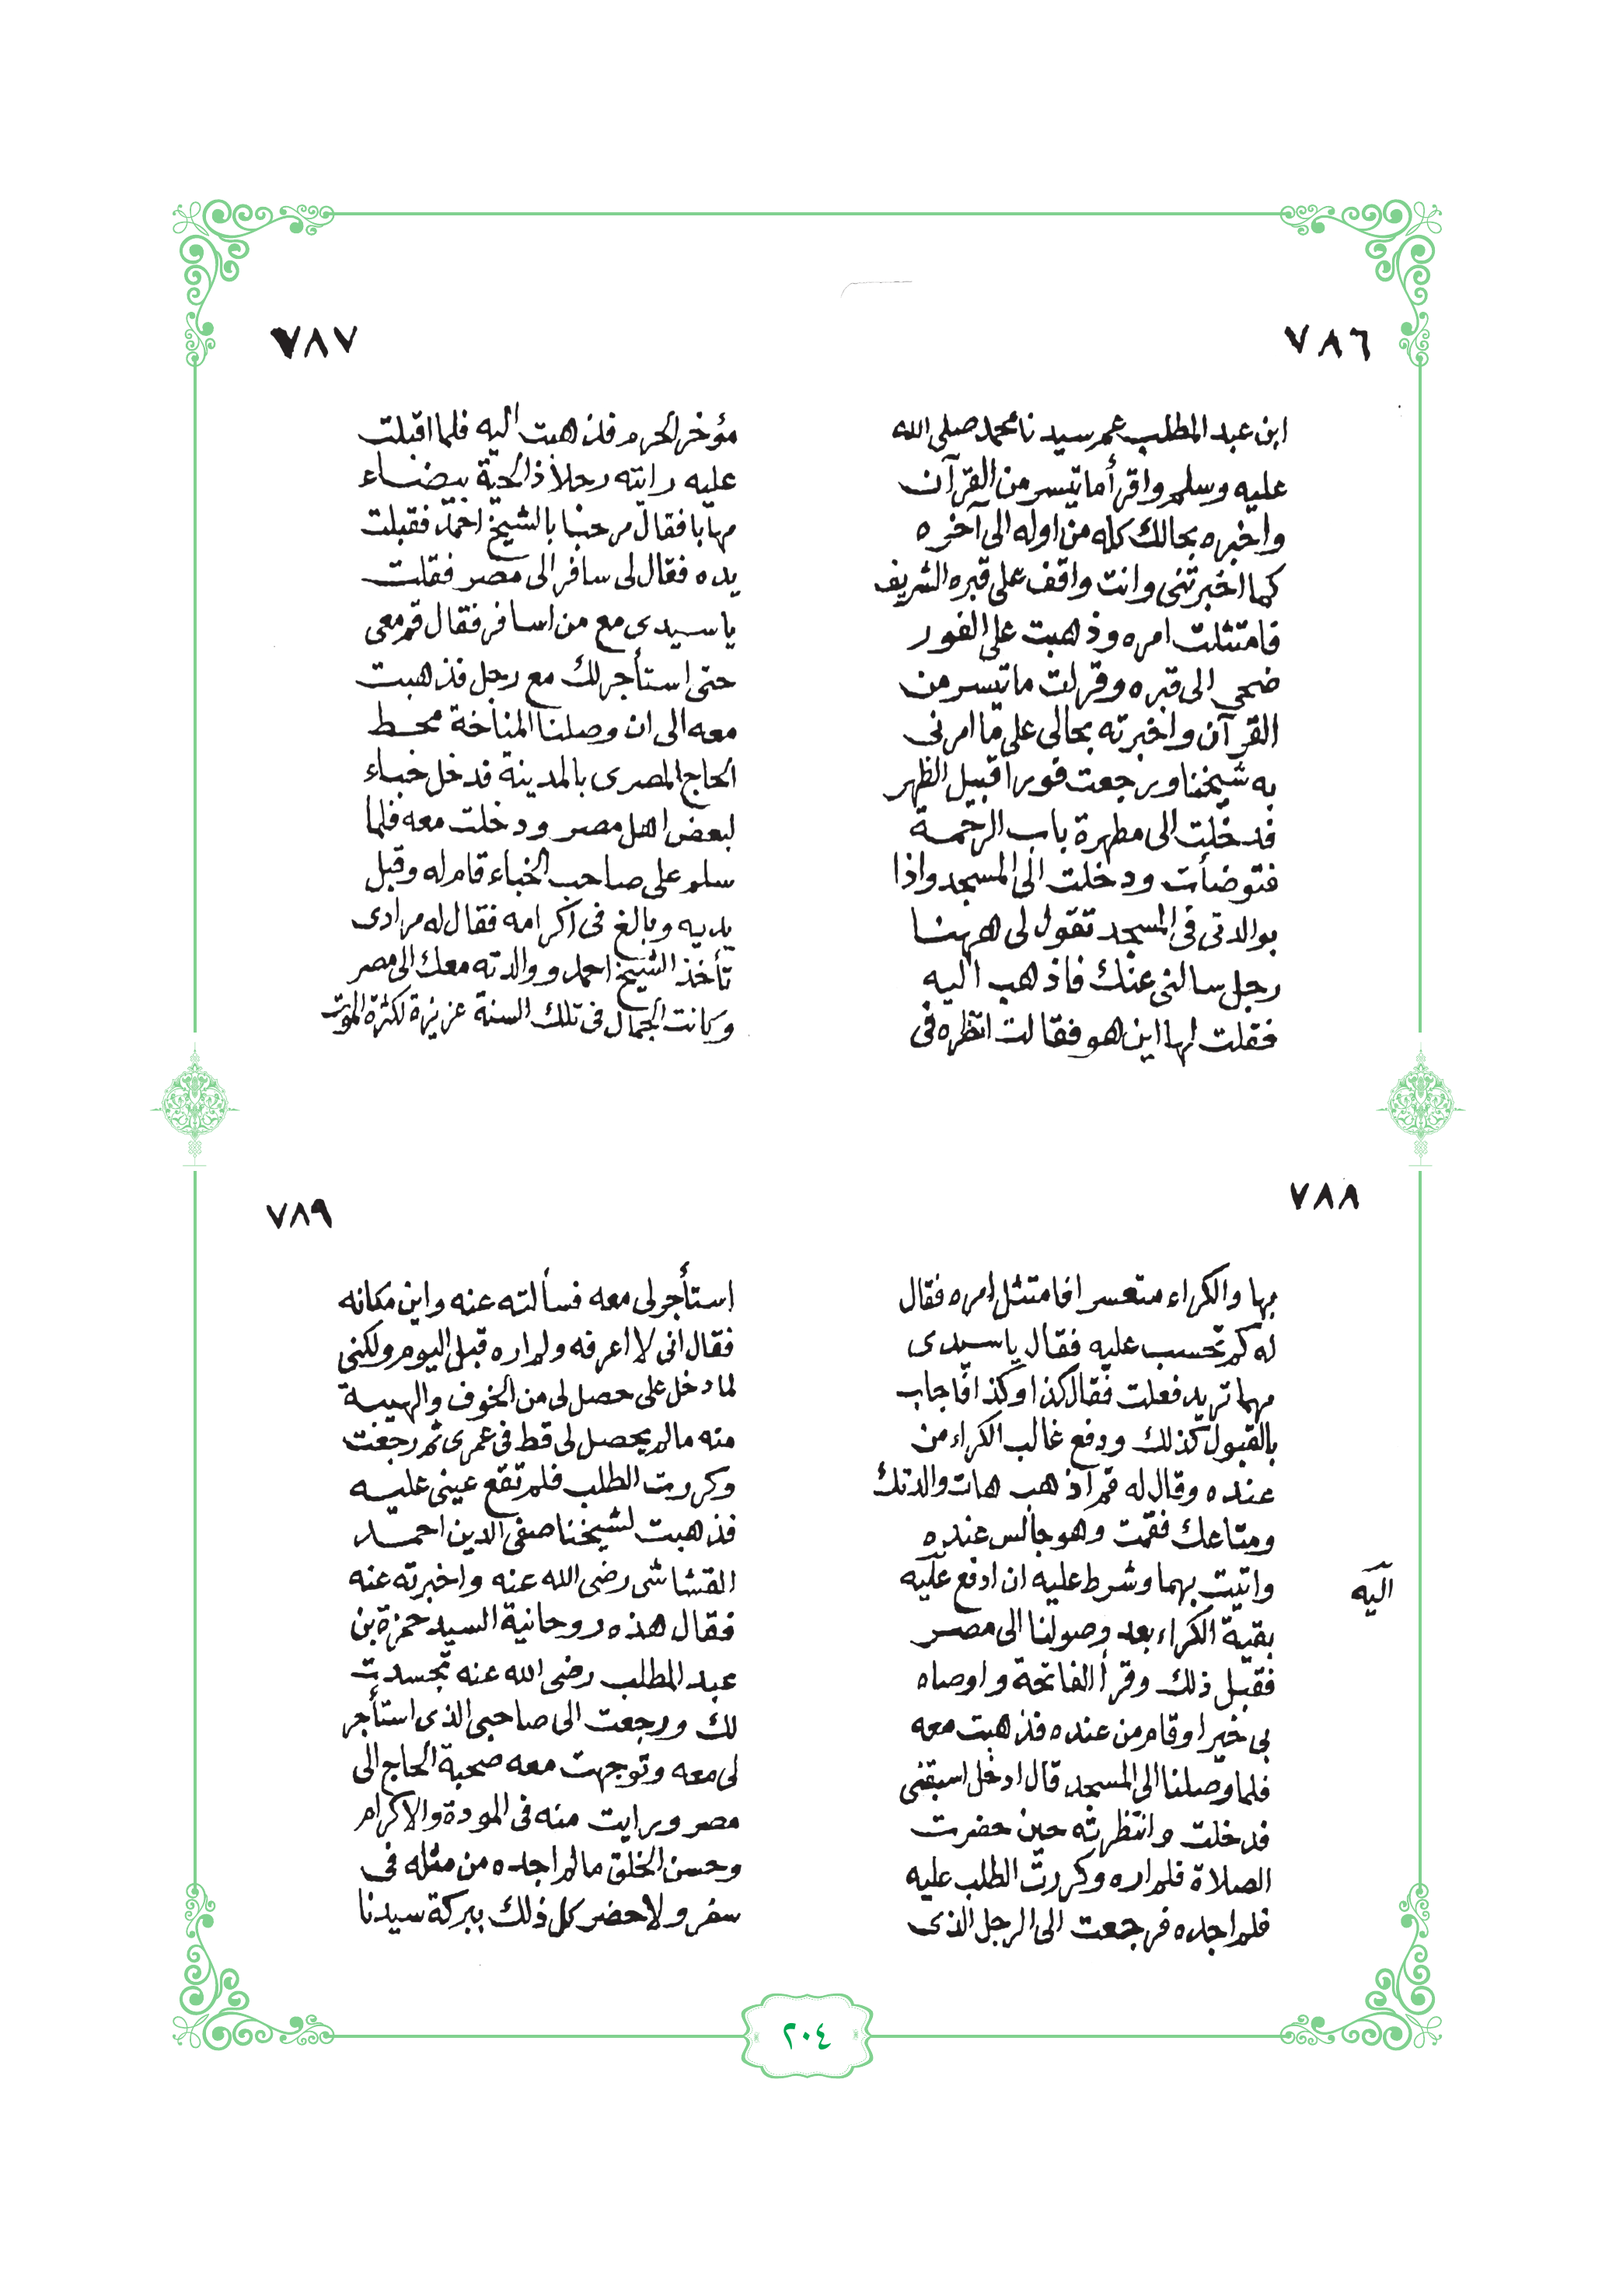 ٧٨٦
ابن عبد المطلب عم سيدنا محمد صلى الله
عليه وسلم واقرأ ما تيسر من القرآن
واخبره بحالك كله من اوله الى آخره
كما اخبرتنى وانت واقف على قبره الشريف
فامتثلت امره وذهبت على الفور
ضحى الى قبره وقرات ما تيسر من
القرآن واخبرته بحالى على ما امرنى
به شيخنا ورجعت فورا قبيل الظهر
فدخلت الى مطهرة باب الرحمة
فتوضأت ودخلت الى المسجد واذا
بوالدتى فى المسجد تقول لى ههنا
رجل سالنى عنك فاذهب اليه
فقلت لها اين هو فقالت انظره فى
٧٨٧
مؤخر الحرم فذهبت اليه فلما اقبلت
عليه رايته رجلا ذا لحية بيضاء
مهابا فقال مرحبا بالشيخ احمد فقبلت
يده فقال لى سافر الى مصر فقلت
يا سيدى مع من اسافر فقال قم معى
حتى استأجر لك مع رجل فذهبت
معه الى ان وصلنا المناخة محط
الحاج المصرى بالمدينة فدخل خباء
لبعض اهل مصر ودخلت معه فلما
سلم على صاحب الخباء قام له وقبل
يديه وبالغ فى اكرامه فقال له مرادى
تأخذ الشيخ احمد ووالدته معك الى مصر
وكانت الجمال فى تلك السنة عزيزة لكثرة الموت
٧٨٨
بها والكراء متعسر افامتثل امره فقال
له كم تحسب عليه فقال يا سيدى
مهما تريد فعلت فقال كذا وكذا فاجاب
بالقبول كذلك ودفع غالب الكراء من
عنده وقال له قم اذهب هات والدتك
ومتاعك فقمت وهو جالس عنده
واتيت بهما وشرط عليه ان ادفع عليه
اليه
بقية الكراء بعد وصولنا الى مصر
فقبل ذلك وقرأ الفاتحة واوصاه
بى خيرا وقام من عنده فذهبت معه
فلما وصلنا الى المسجد قال ادخل اسبقنى
فدخلت وانتظرته حين حضرت
الصلاة فلم اره وكررت الطلب عليه
فلم اجده فرجعت الى الرجل الذى
٧٨٩
استأجر لى معه فسألته عنه واين مكانه
فقال انى لا اعرفه ولم اره قبل اليوم ولكنى
لما دخل على حصل لى من الخوف والهيبة
منه ما لم يحصل لى قط فى عمرى ثم رجعت
وكررت الطلب فلم تقع عينى عليه
فذهبت لشيخنا صفى الدين احمد
القشاشى رضى الله عنه واخبرته عنه
فقال هذه روحانية السيد حمزة بن
عبد المطلب رضى الله عنه تجسدت
لك ورجعت الى صاحبى الذى استأجر
لى معه وتوجهت معه صحبة الحاج الى
مصر ورايت منه فى المودة والاكرام
وحسن الخلق ما لم اجده من مثله فى
سفر ولا حضر كل ذلك ببركة سيدنا
٢٠٤